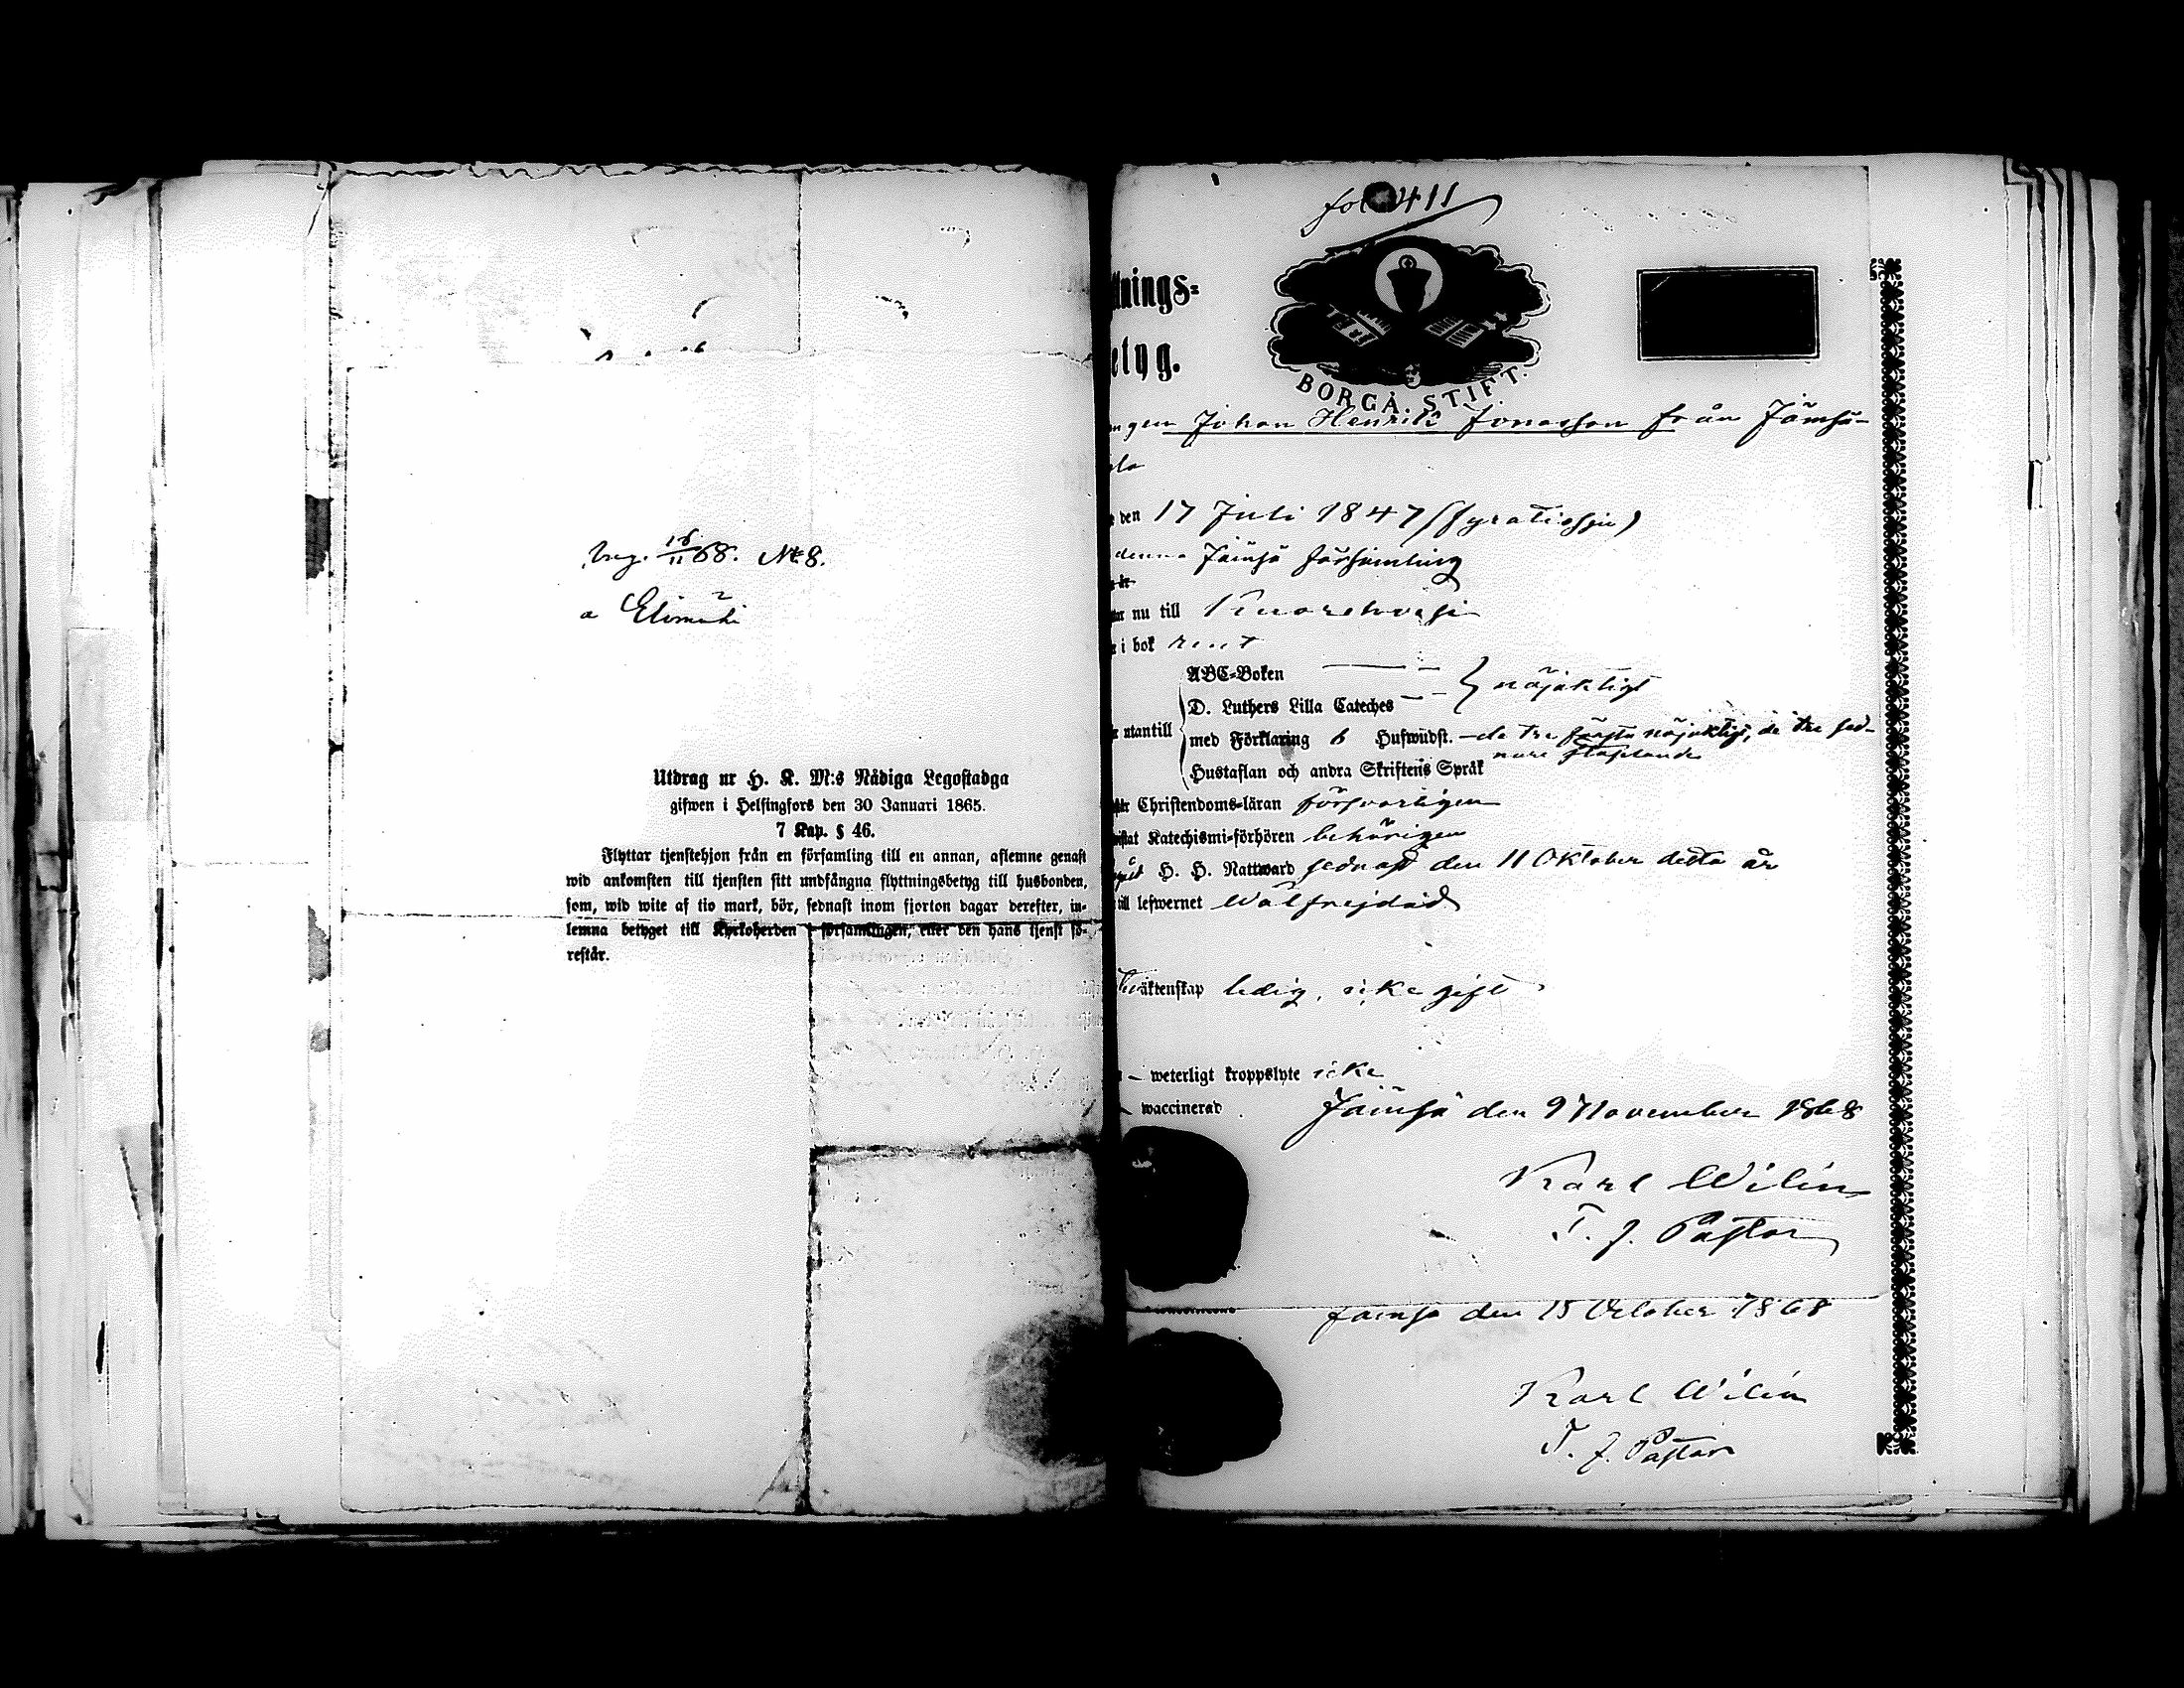 a Elimäki
Utdrag ur H. K. M:s Nådiga Legostadga
gifwen i Helsingfors den 30 Januari 1865.
7 Kap. § 46.
Flyttar tjenstehjon från en församling till en annan, aflemne genast
wid ankomsten till tjensten sitt undfångna flyttningsbetyg till husbonden,
som, wid wite af tio mark, bör, sednast inom fjorton dagar derefter, in-
lemna betyget till Kyrkoherden i församlingen, eller den hans tjenst fö-
restår.
fol 411
tnings-
etyg.
BORGÅ STIFT.
ngen Johan Henrik Jonasson från Jämsä-
den 17 Juli 1847 (fyratiosju)
denna Jämsä församling
nu till
i bok rent
ABC-Boken
D. Luthers Lilla Cateches } nöjaktigt
utantill
med Förklaring 6 Hufwudst. - de tre första nöjaktigt, de tre sed-
nare
Hustaflan och andra Skriftens Språk
Christendoms-läran försvarligen
Katechismi-förhören behörigen
H. H. Nattward sednast den 11 Oktober detta år
till lefwernet Wälfrejdad
äktenskap ledig, icke gift
weterligt kroppslyte icke
waccinerad
Jämsä den 9 November 1868
Karl Wilén
T. f. Pastor
Jämsä den 15 October 1868
Karl Wilén
T. f. Pastor